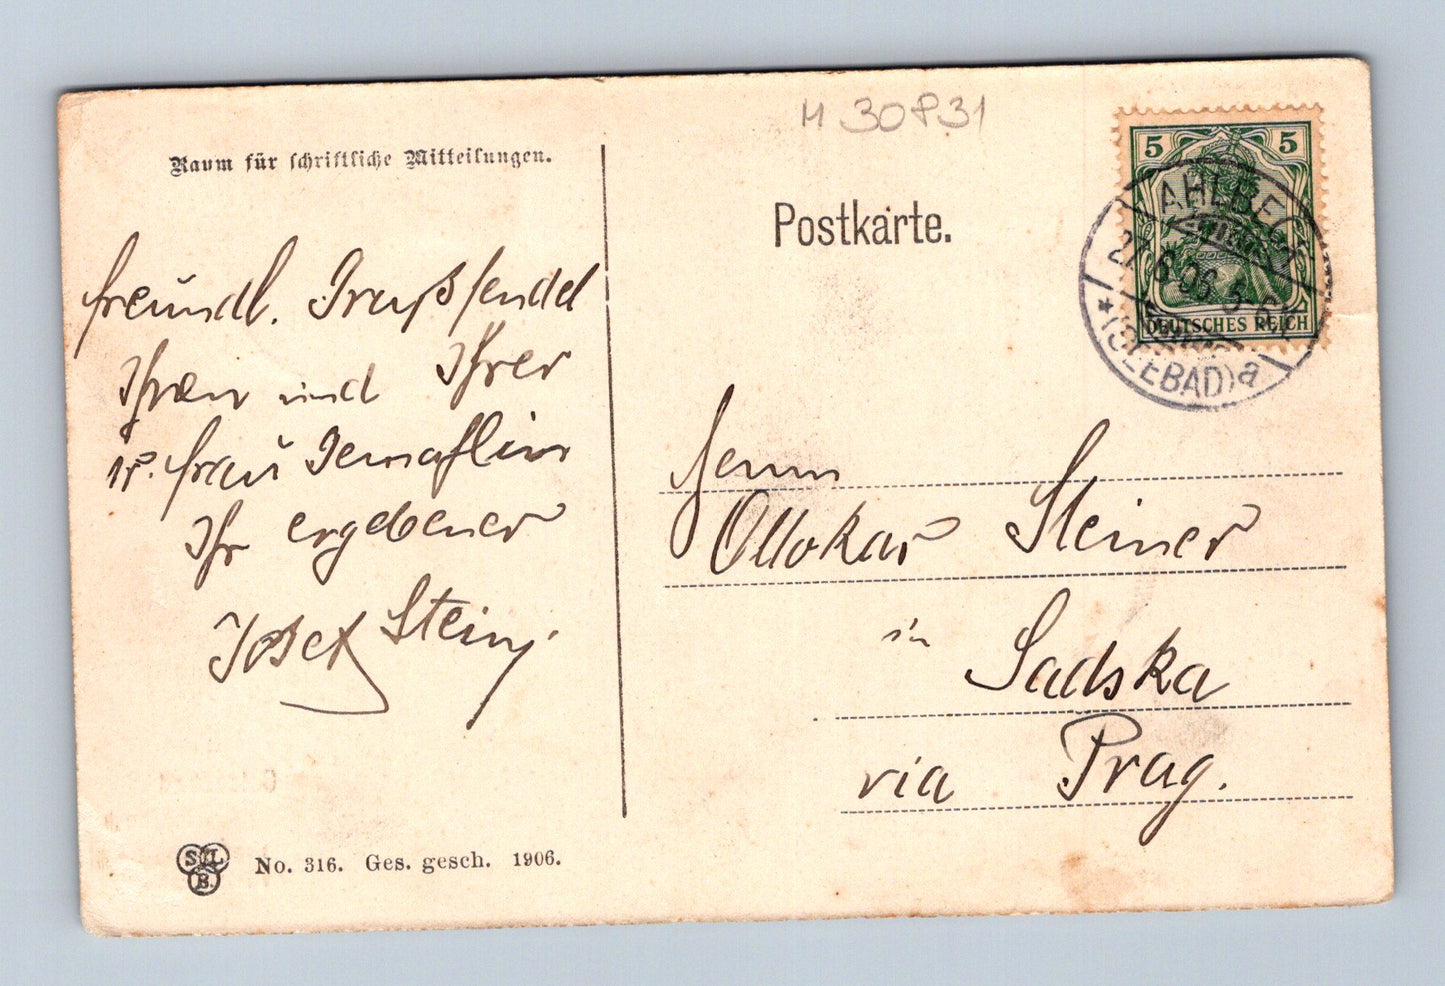 M 30831
Raum für schriftliche Mitteilungen.
Postkarte.
5 5
DEUTSCHES REICH
AHLBECK
27.6.06. 5-6N
* (SEEBAD) a
freundl. Gruß sendet
Ihnen und Ihrer
Frau Gemahlin
Ihr ergebener
Josef Stein
Herrn
Ottokar Steiner
in
Sadska
via Prag.
S L
B.
No. 316. Ges. gesch. 1906.